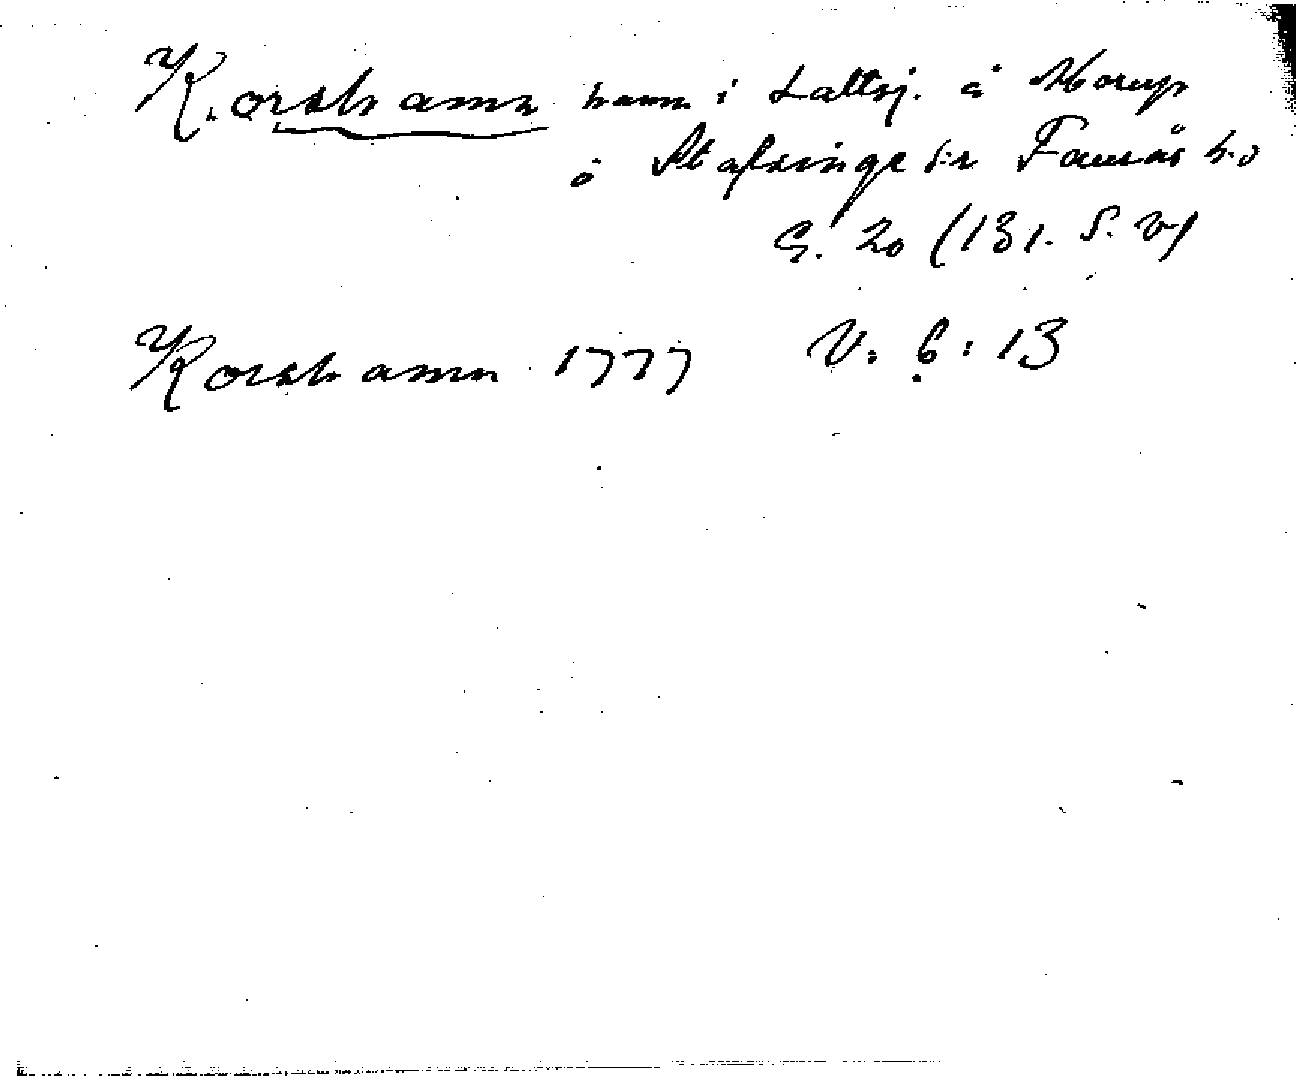 Korshamn hamn i Saltsj. å Morup
o Stafsinge s:r Faurås h:d
G. 20 (131. S. V)
Korshamn 1777 V: 6: 13